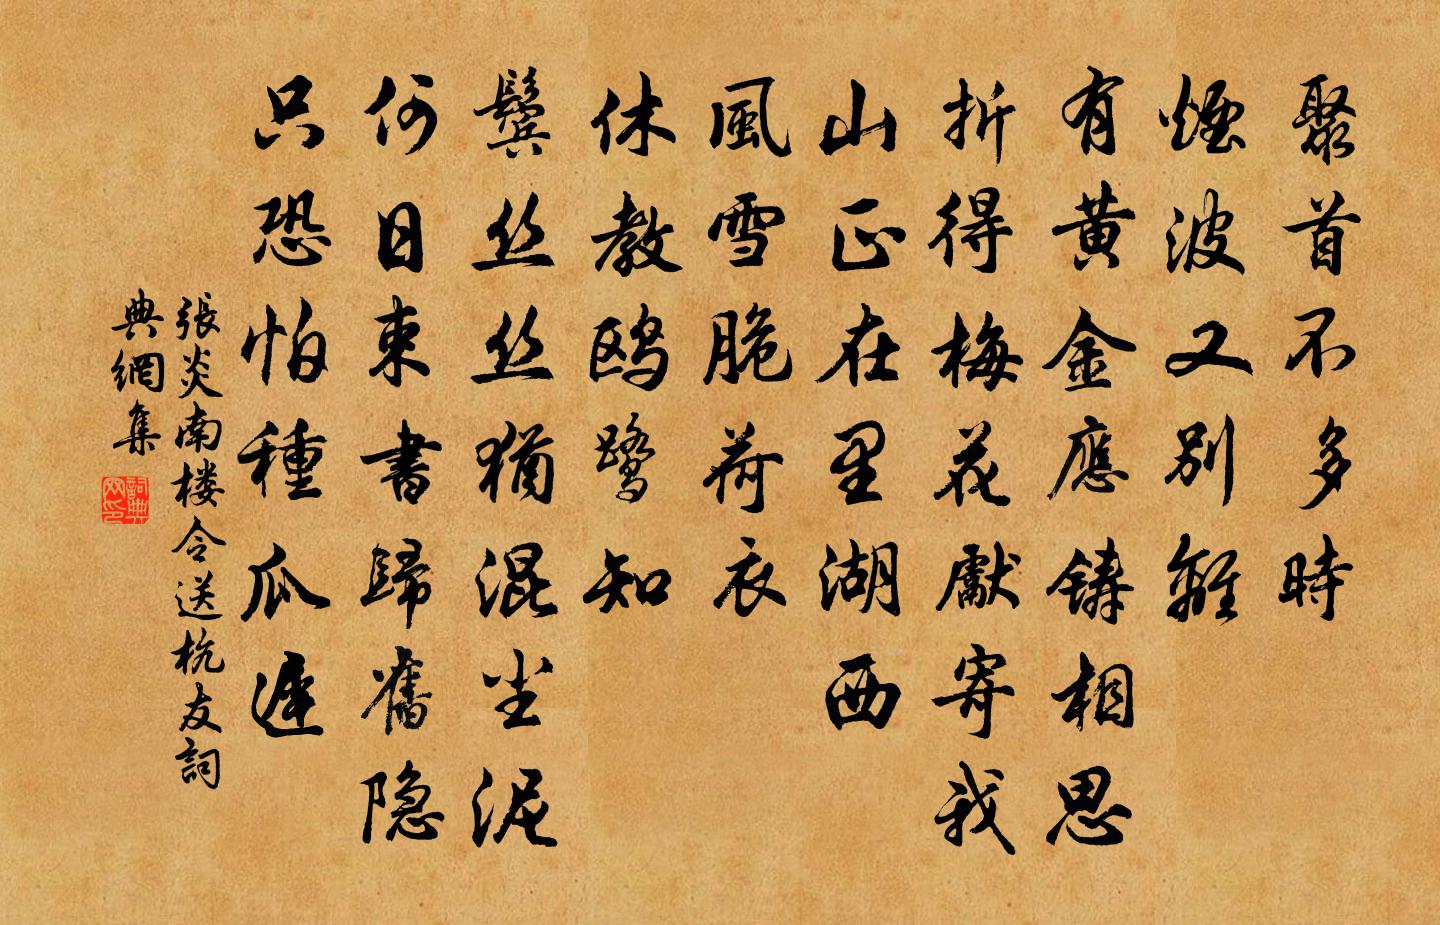 聚首不多時
煙波又別離
有黃金應鑄相思
折得梅花獻寄我
山正在里湖西
風雪脆荷衣
休教鸥鹭知
鬢丝丝猶混尘泥
何日束書歸舊隐
只恐怕種瓜遲
張炎南楼令送杭友詞
典網集
詞典网印